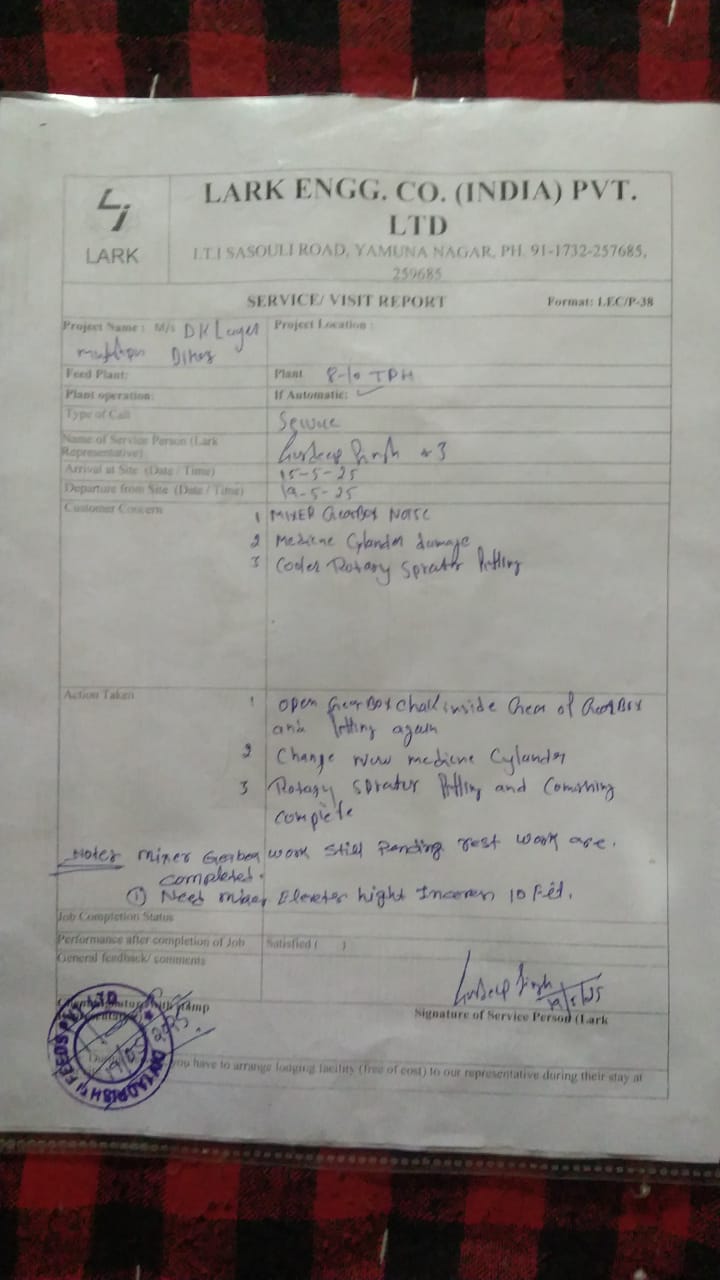 LARK
LARK ENGG. CO. (INDIA) PVT.
LTD
I.T.I SASOULI ROAD, YAMUNA NAGAR, PH. 91-1732-257685,
259685
SERVICE/ VISIT REPORT Format: LEC/P-38
Project Name : M/s DK Project Location :
Feed Plant: Plant 8-10 TPH
Plant operation: If Automatic: ✓
Type of Call
Name of Service Person (Lark
Representative) Gurdeep Singh + 3
Arrival at Site (Date / Time) 15-5-25
Departure from Site (Date / Time) 19-5-25
Customer Concern 1 MIXER GearBox NOISE
2 Medicine Cylander dumage
3 Cooler Rotary Sprater
Action Taken 1 open GearBox inside of GearBox
and again
2 Change new medicine Cylander
3 Rotary Sprater and
complete
Notes mixer work still Pending rest work are.
completed.
① Need mixer hight 10
Job Completion Status
Performance after completion of Job Satisfied ( )
General feedback/ comments
Gurdeep Singh
19/5/25
Signature of Service Person (Lark
FEEDS PVT. LTD
19/05/2025
you have to arrange lodging facility (free of cost) to our representative during their stay at